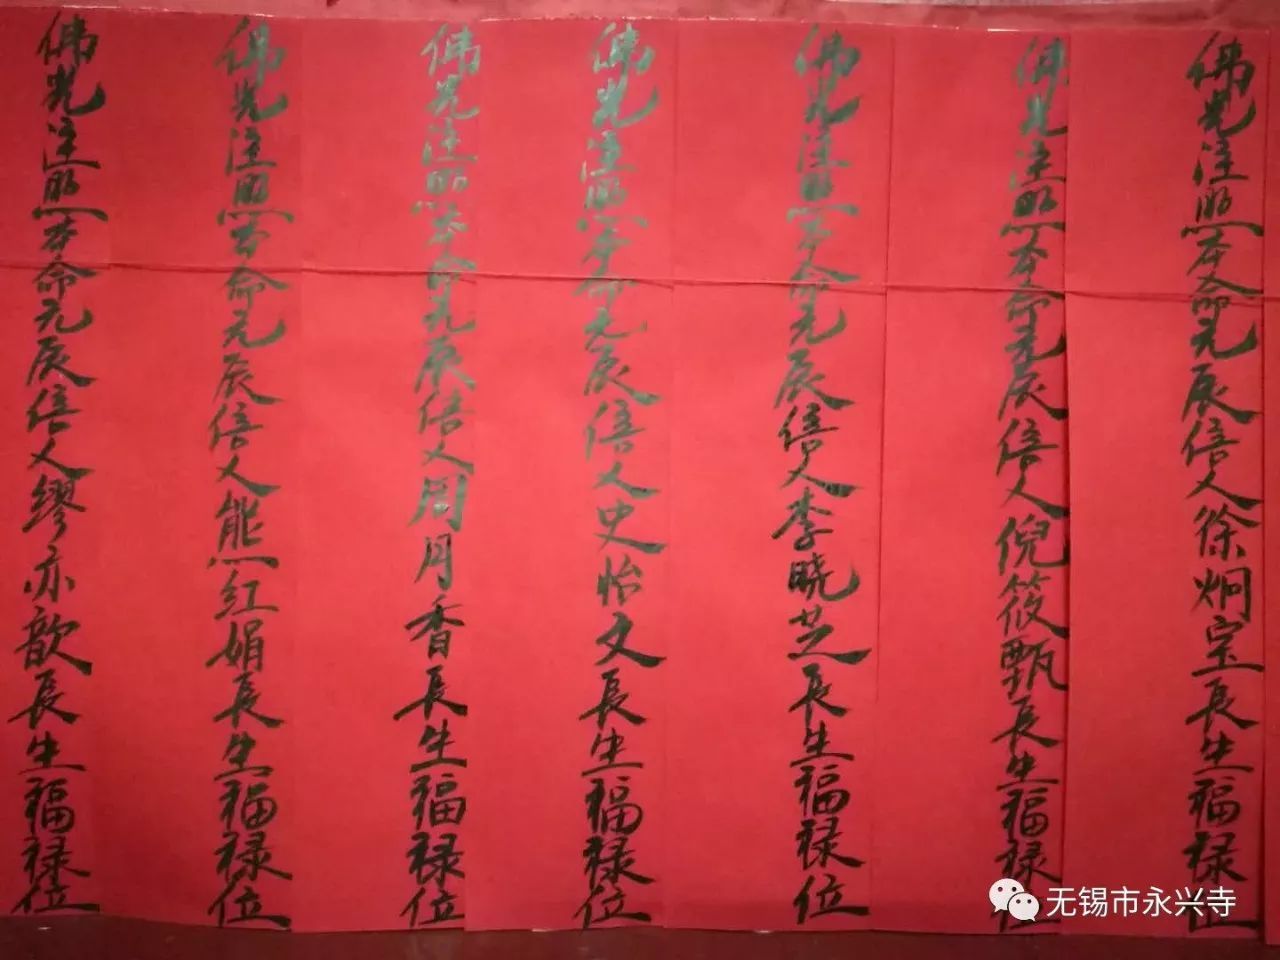 佛光注照本命元辰信人徐炯宝長生福禄位
佛光注照本命元辰信人倪筱甄長生福禄位
佛光注照本命元辰信人李晓芝長生福禄位
佛光注照本命元辰信人史怡文長生福禄位
佛光注照本命元辰信人周月香長生福禄位
佛光注照本命元辰信人熊红娟長生福禄位
佛光注照本命元辰信人缪亦歆長生福禄位
无锡市永兴寺